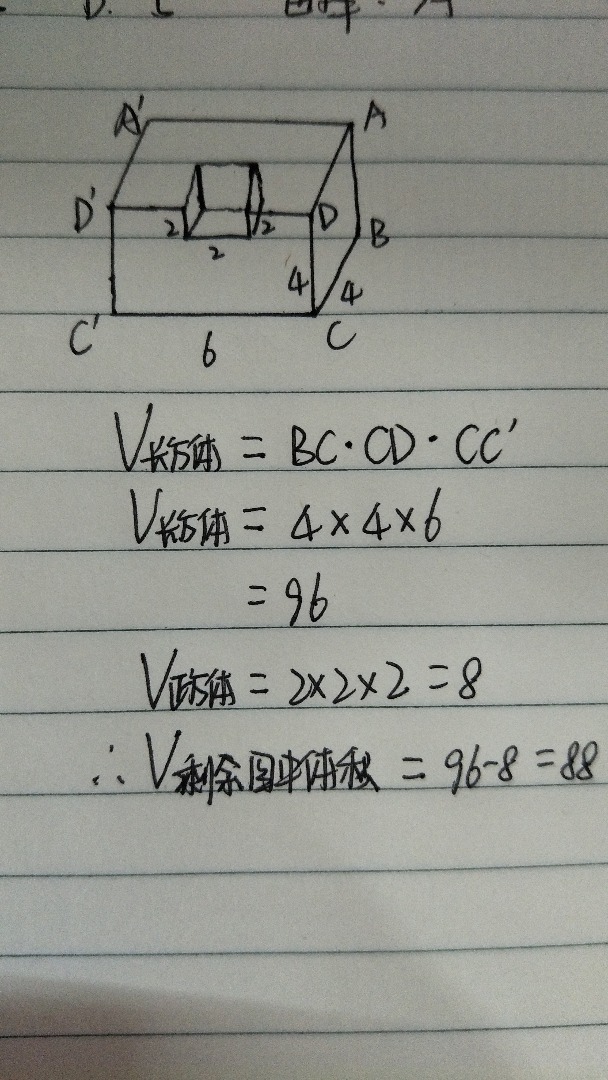 A' A
D' 2 2 D B
2 4 4
C' 6 C
V长方体 = BC·CD·CC'
V长方体 = 4×4×6
= 96
V正方体 = 2×2×2=8
∴V剩余图中体积 = 96-8=88